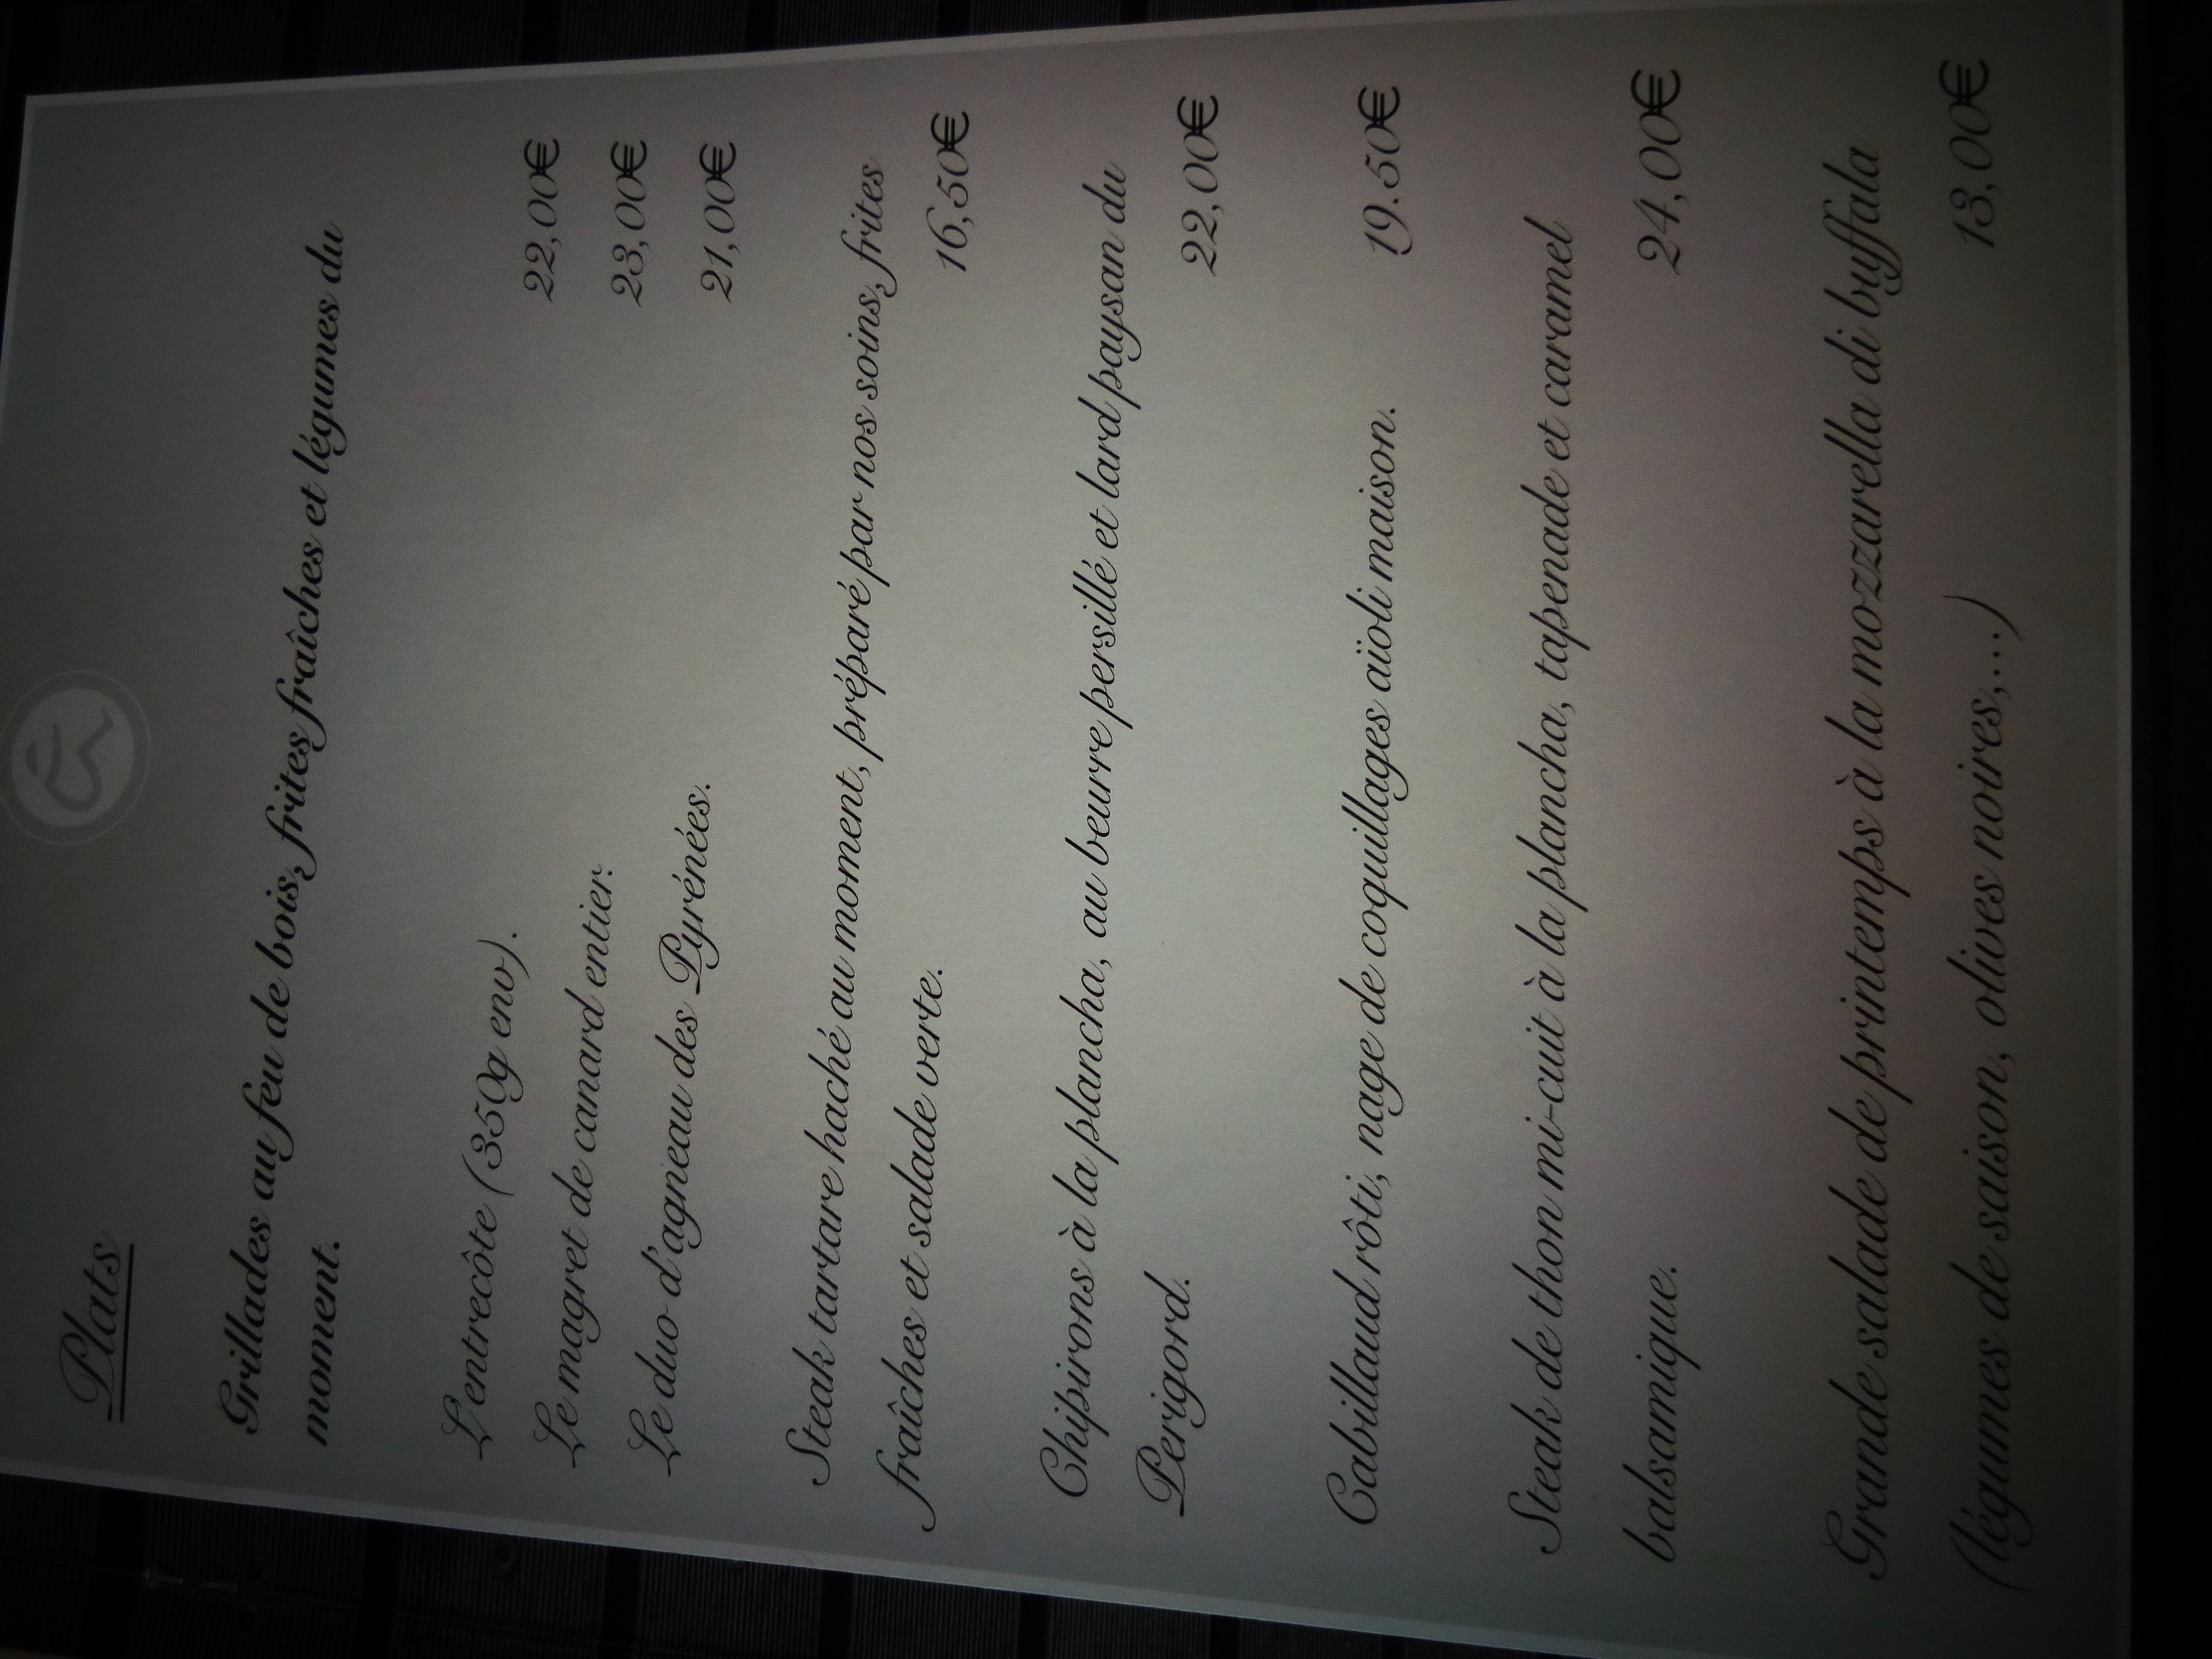 Plats
Grillades au feu de bois, frites fraîches et légumes du
moment.
L'entrecôte (350g env).
22,00€
Le magret de canard entier.
23,00€
Le duo d'agneau des Pyrénées.
21,00€
Steak tartare haché au moment, préparé par nos soins, frites
fraîches et salade verte.
16,50€
Chipirons à la plancha, au beurre persillé et lard paysan du
Perigord.
22,00€
Cabillaud rôti, nage de coquillages aïoli maison.
19.50€
Steak de thon mi-cuit à la plancha, tapenade et caramel
balsamique.
24,00€
Grande salade de printemps à la mozzarella di buffala
(légumes de saison, olives noires,...)
13,00€